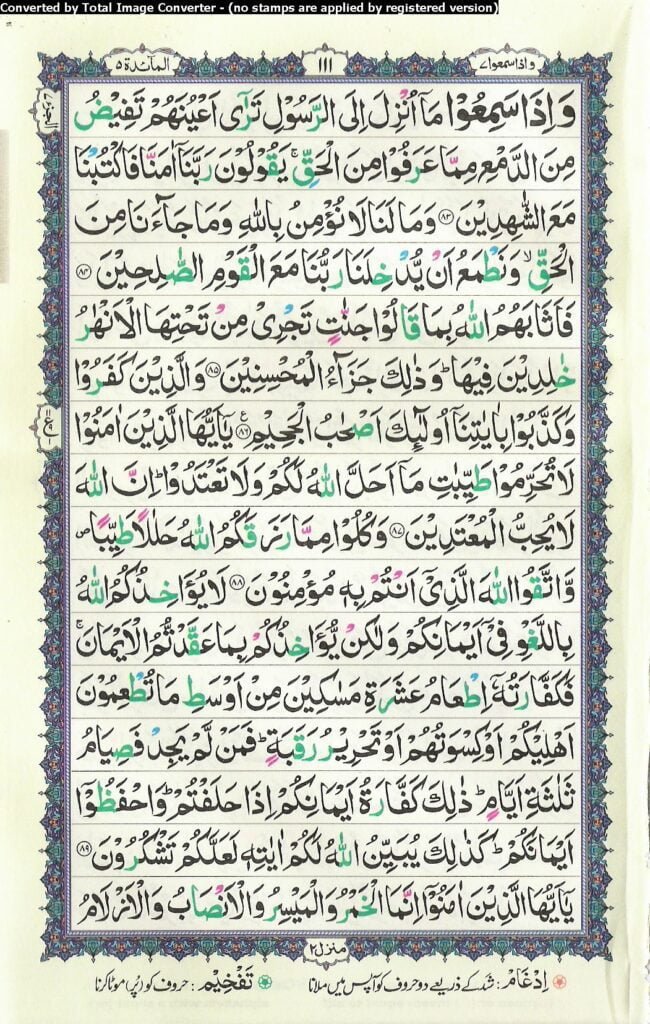 Converted by Total Image Converter - (no stamps are applied by registered version)
واذاسمعوا۷
۱۱۱
المآئدة۵
وَاِذَا سَمِعُوْا مَاۤ اُنْزِلَ اِلَى الرَّسُوْلِ تَرٰۤى اَعْيُنَهُمْ تَفِيْضُ
مِنَ الدَّمْعِ مِمَّا عَرَفُوْا مِنَ الْحَقِّ ۚ يَقُوْلُوْنَ رَبَّنَاۤ اٰمَنَّا فَاكْتُبْنَا
مَعَ الشّٰهِدِيْنَ ﴿۸۳﴾ وَمَا لَنَا لَا نُؤْمِنُ بِاللّٰهِ وَمَا جَآءَنَا مِنَ
الْحَقِّ ۙ وَنَطْمَعُ اَنْ يُّدْخِلَنَا رَبُّنَا مَعَ الْقَوْمِ الصّٰلِحِيْنَ ﴿۸۴﴾
فَاَثَابَهُمُ اللّٰهُ بِمَا قَالُوْا جَنّٰتٍ تَجْرِىْ مِنْ تَحْتِهَا الْاَنْهٰرُ
خٰلِدِيْنَ فِيْهَا ؕ وَذٰلِكَ جَزَآءُ الْمُحْسِنِيْنَ ﴿۸۵﴾ وَالَّذِيْنَ كَفَرُوْا
وَكَذَّبُوْا بِاٰيٰتِنَاۤ اُولٰٓئِكَ اَصْحٰبُ الْجَحِيْمِ ﴿۸۶﴾ يٰۤاَيُّهَا الَّذِيْنَ اٰمَنُوْا
لَا تُحَرِّمُوْا طَيِّبٰتِ مَاۤ اَحَلَّ اللّٰهُ لَكُمْ وَلَا تَعْتَدُوْا ؕ اِنَّ اللّٰهَ
لَا يُحِبُّ الْمُعْتَدِيْنَ ﴿۸۷﴾ وَكُلُوْا مِمَّا رَزَقَكُمُ اللّٰهُ حَلٰلًا طَيِّبًا ص
وَّاتَّقُوا اللّٰهَ الَّذِىْۤ اَنْتُمْ بِهٖ مُؤْمِنُوْنَ ﴿۸۸﴾ لَا يُؤَاخِذُكُمُ اللّٰهُ
بِاللَّغْوِ فِىْۤ اَيْمَانِكُمْ وَلٰكِنْ يُّؤَاخِذُكُمْ بِمَا عَقَّدْتُّمُ الْاَيْمَانَ ۚ
فَكَفَّارَتُهٗۤ اِطْعَامُ عَشَرَةِ مَسٰكِيْنَ مِنْ اَوْسَطِ مَا تُطْعِمُوْنَ
اَهْلِيْكُمْ اَوْ كِسْوَتُهُمْ اَوْ تَحْرِيْرُ رَقَبَةٍ ؕ فَمَنْ لَّمْ يَجِدْ فَصِيَامُ
ثَلٰثَةِ اَيَّامٍ ؕ ذٰلِكَ كَفَّارَةُ اَيْمَانِكُمْ اِذَا حَلَفْتُمْ ؕ وَاحْفَظُوْۤا
اَيْمَانَكُمْ ؕ كَذٰلِكَ يُبَيِّنُ اللّٰهُ لَكُمْ اٰيٰتِهٖ لَعَلَّكُمْ تَشْكُرُوْنَ ﴿۸۹﴾
يٰۤاَيُّهَا الَّذِيْنَ اٰمَنُوْۤا اِنَّمَا الْخَمْرُ وَالْمَيْسِرُ وَالْاَنْصَابُ وَالْاَزْلَامُ
منزل۲
اِدْغَامْ: شد کے ذریعے دو حروف کو آپس میں ملانا
تَفْخِيْم: حروف کو (پُر) موٹا کرنا